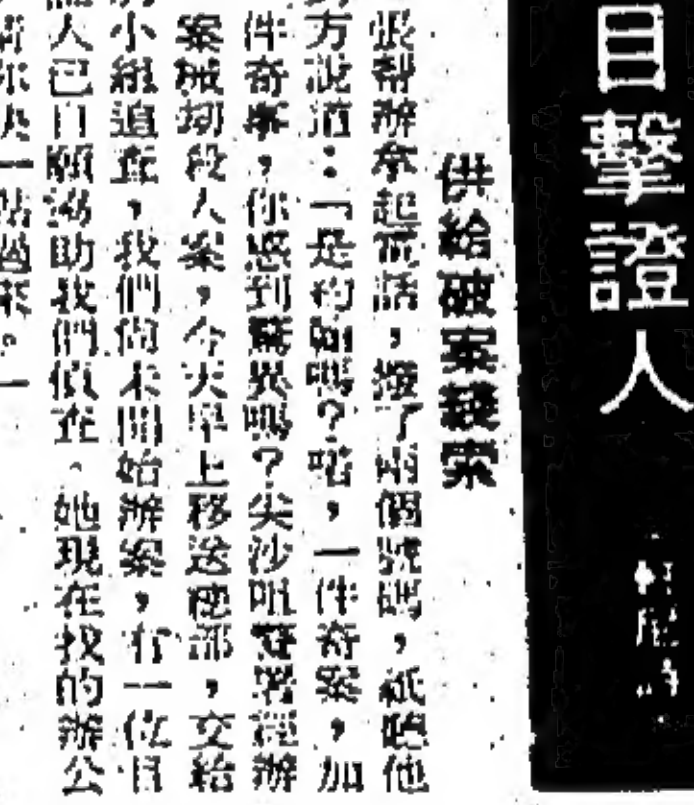 目擊證人
供給破案綫索
張幫辦拿起電話,撥了兩個號碼,祇聽他
方說道:「是約翰嗎?喏,一件奇案,加
件奇事,你感到驚異嗎?尖沙咀警署經辦
案械刧殺人案,今天早上移送總部,交給
小組追查,我們尚未開始辦案,有一位目
人已自願協助我們偵查。她現在我的辦公
你快一點過來。」